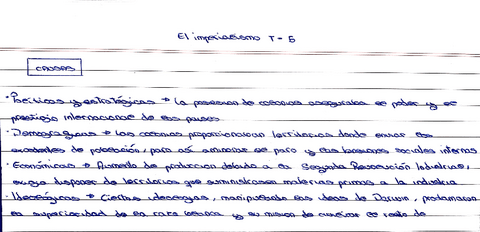 El imperialismo T-5
CAUSAS
· Políticas y estratégicas → La posesion de colonias aseguraba el poder y el
prestigio internacional de los paises
· Demográficas → Las colonias proporcionaban territorios donde enviar los
excedentes de población, para así aminorar el paro y las tensiones sociales internas
· Económicas → Aumento de produccion debido a la Segunda Revolución Industrial,
exige disponer de territorios que suministrasen materias primas a la industria
· Ideológicas → Ciertas ideologías, manipulando las ideas de Darwin, proclamaron
la superioridad de la raza blanca y su mision de civilizar el resto de